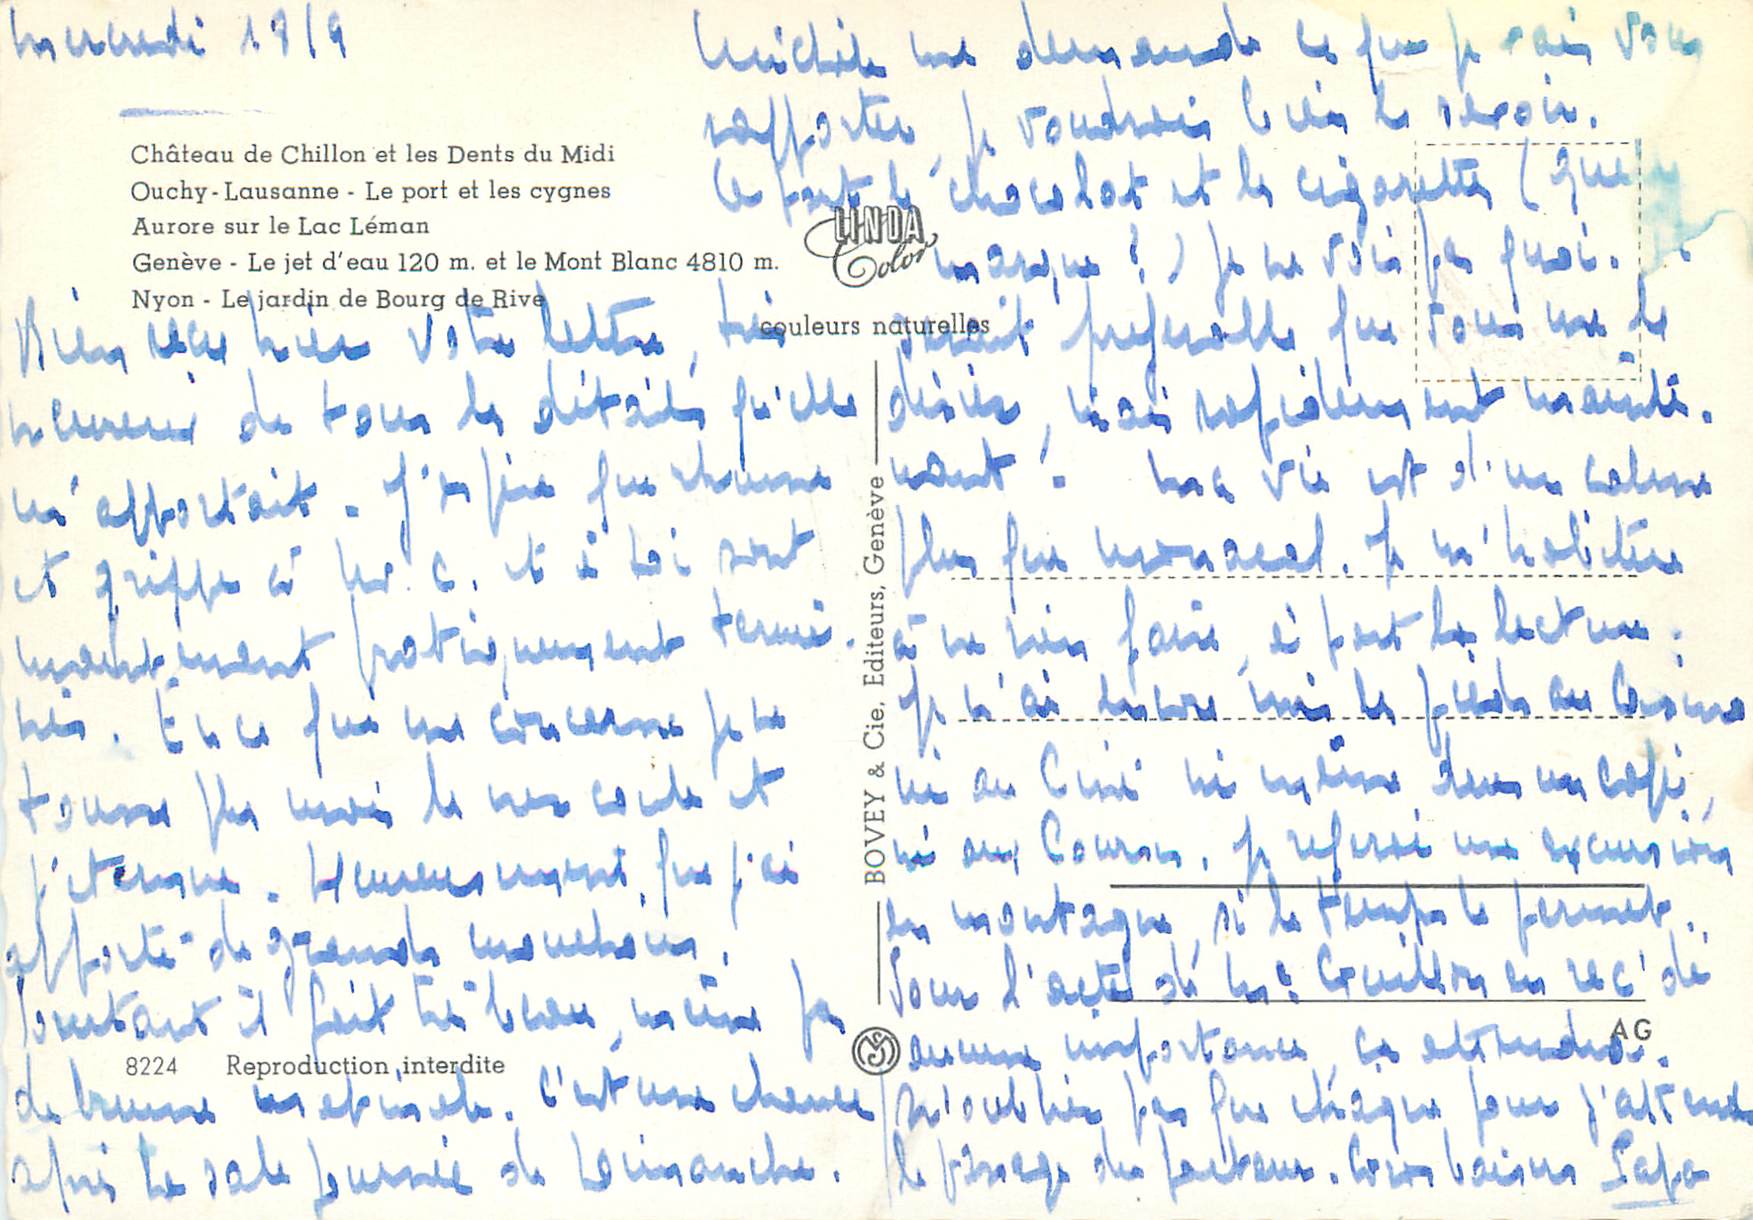 mercredi 19/9
Château de Chillon et les Dents du Midi
Ouchy-Lausanne - Le port et les cygnes
Aurore sur le Lac Léman
Genève - Le jet d'eau 120 m. et le Mont Blanc 4810 m.
Nyon - Le jardin de Bourg de Rive
LINDA
Color
couleurs naturelles
Bien reçu hier votre lettre, très
heureux de tous les détails qu'elle
m'apportait. J'espère que rhume
et grippe à et à toi sont
maintenant pratiquement termi-
nés. En ce qui me concerne je ne
tousse plus mais le nez coule et
j'éternue. Heureusement que j'ai
apporté de grands mouchoirs.
Pourtant il fait très beau, même pas
de brume matinale. C'est une chance
après la sale journée de Dimanche.
Michèle me demande ce que je vais vous
rapporter, je voudrais bien le savoir.
A part le chocolat et les cigarettes (quelle
marque ?) je ne vois pas quoi.
serait préférable que vous me le
disiez, mais rapidement mainte-
nant. Ma vie est d'un calme
plus que monacal. Je m'habitue
à ne rien faire, à part la lecture.
Je n'ai encore mis les pieds au Casino
ni au Ciné ni même dans un café,
ni aux Courses. Je réserve une excursion
en montagne, si le temps le permet.
Pour l'acte de en rec' de
aucune importance, ça attendra.
N'oublie pas que chaque jour j'attends
le passage du facteur. Gros baisers Papa
BOVEY & Cie, Editeurs, Genève
8224 Reproduction interdite
AG